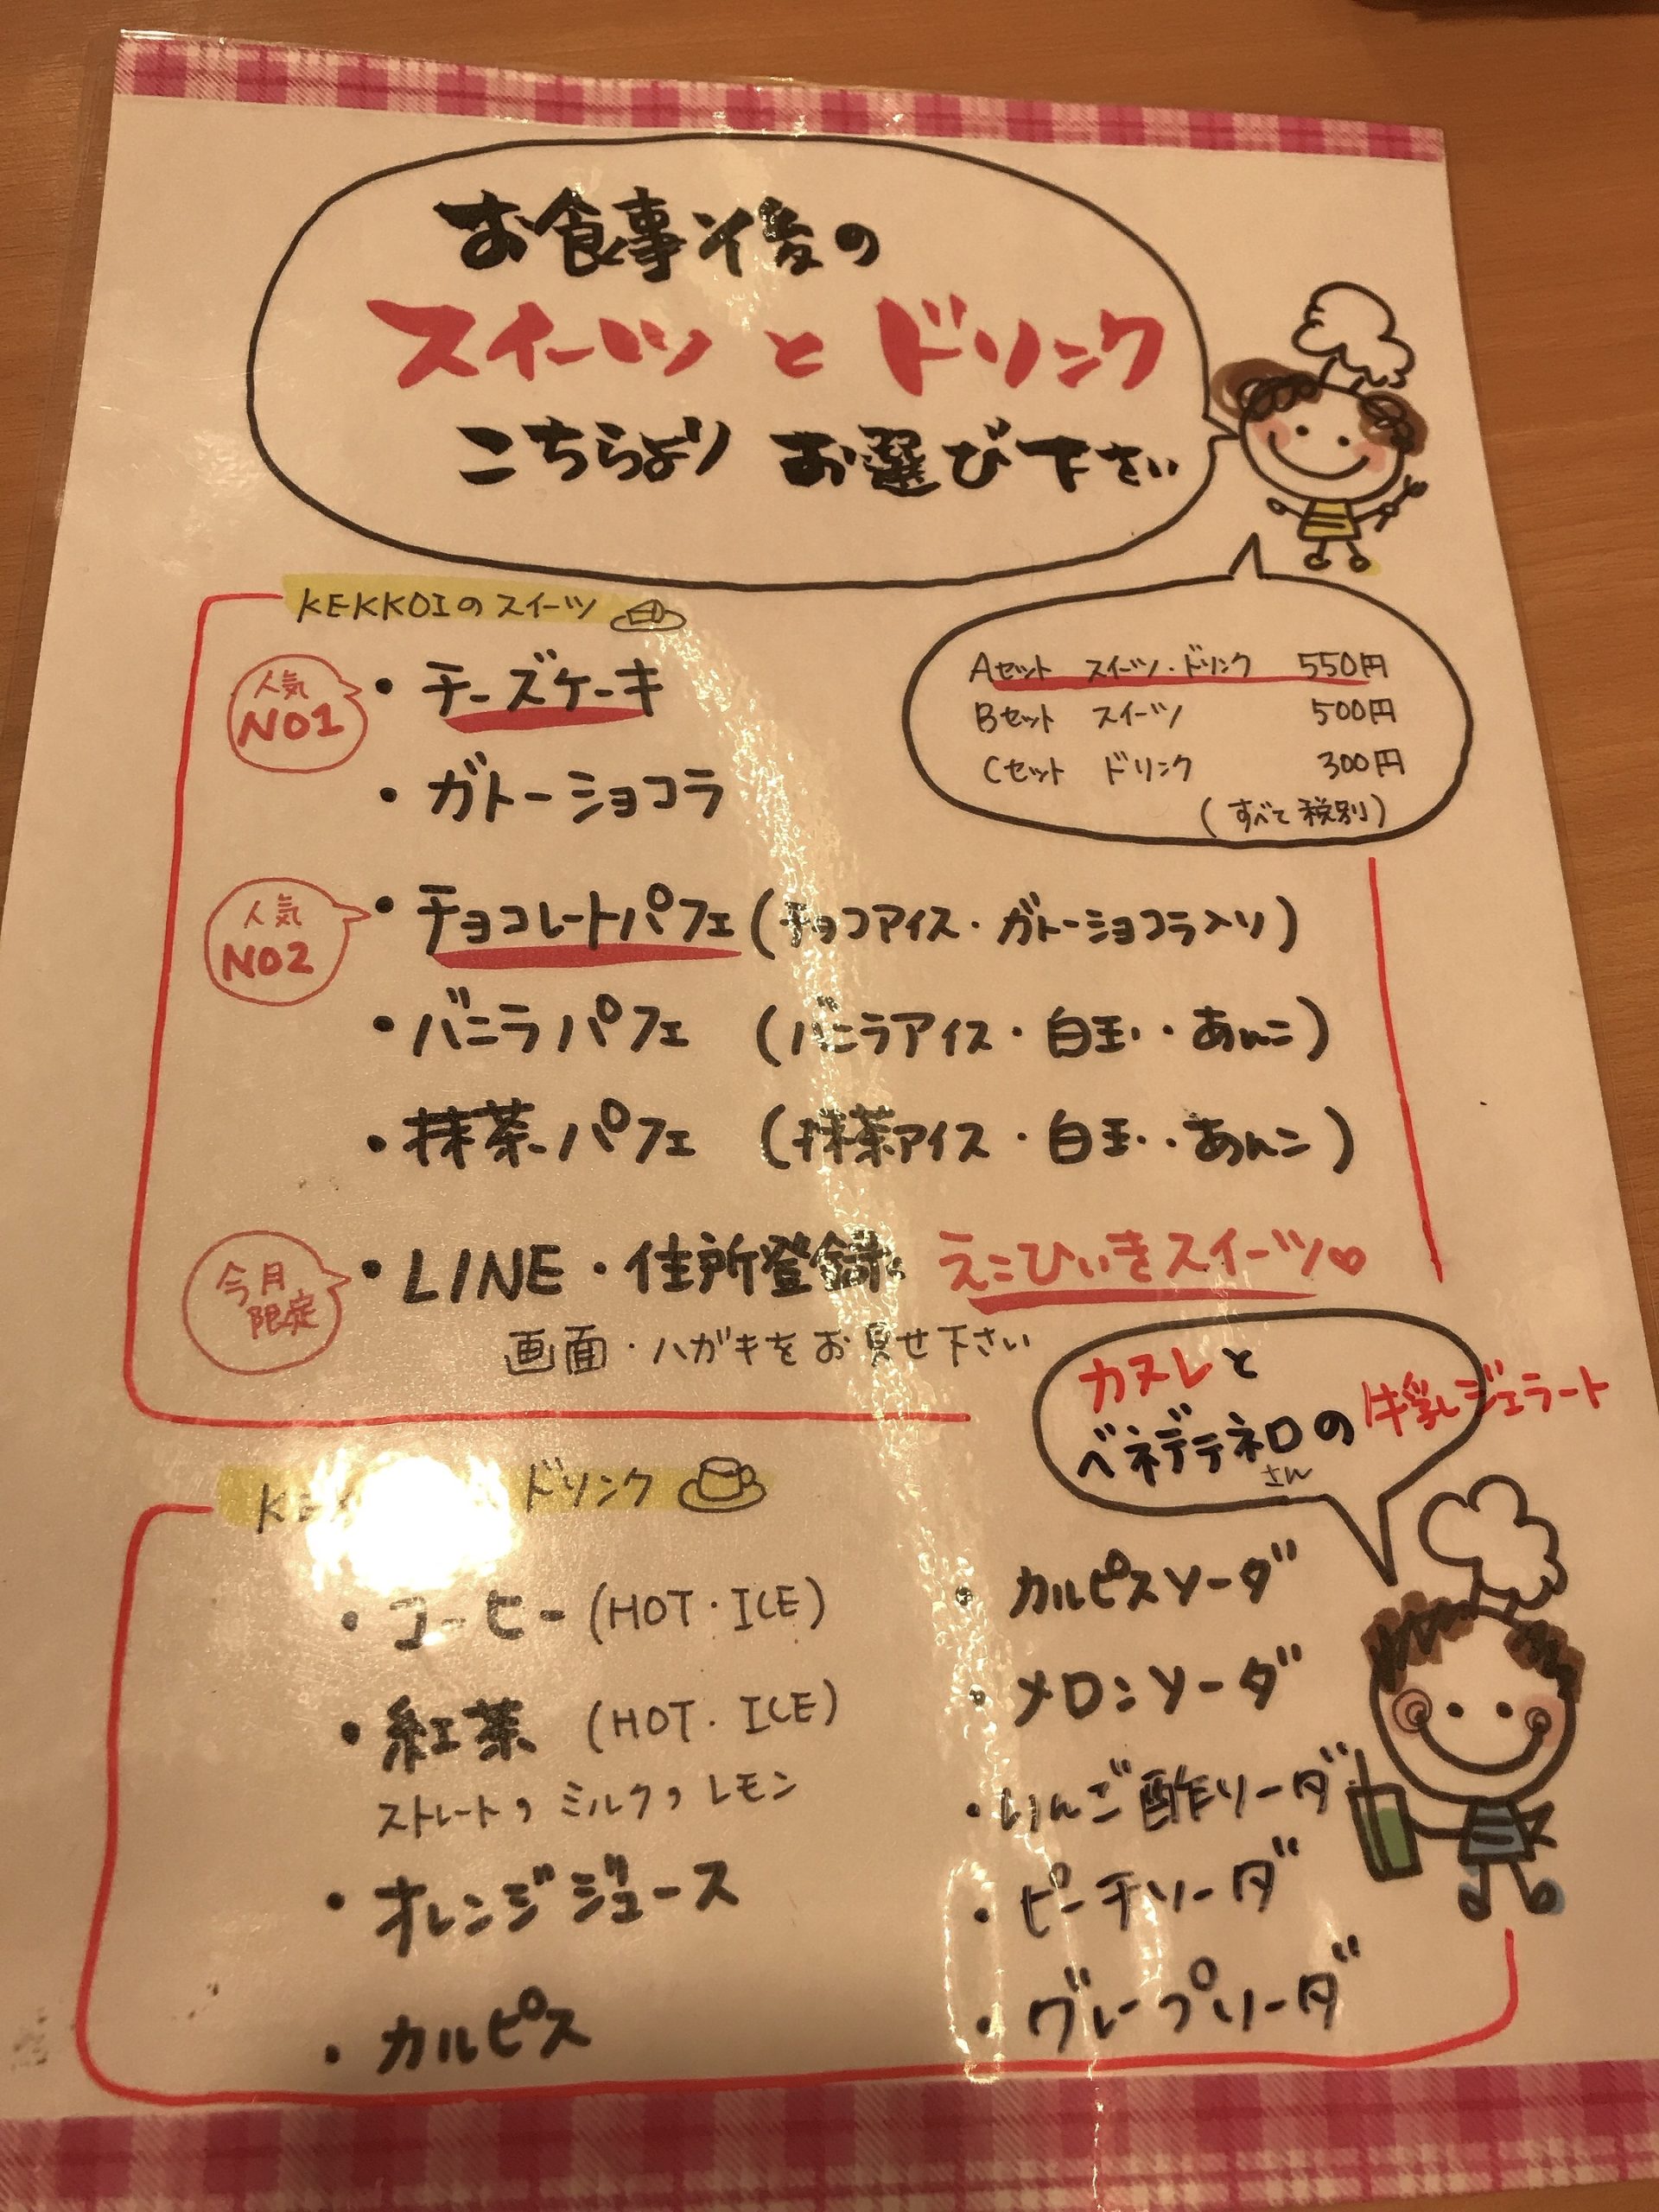 お食事後の
スイーツ と ドリンク
こちらより お選び下さい
KEKKOIのスイーツ
Aセット スイーツ・ドリンク 550円
Bセット スイーツ 500円
Cセット ドリンク 300円
(すべて税別)
人気
NO1
・チーズケーキ
・ガトーショコラ
人気
NO2
・チョコレートパフェ(チョコアイス・ガトーショコラ入り)
・バニラパフェ (バニラアイス・白玉・あんこ)
・抹茶パフェ (抹茶アイス・白玉・あんこ)
今月
限定
・LINE・住所登録 えこひいきスイーツ♡
画面・ハガキをお見せ下さい
カヌレと
ベネデテネロさんの牛乳ジェラート
ドリンク
・コーヒー(HOT・ICE)
・紅茶 (HOT・ICE)
ストレート, ミルク, レモン
・オレンジジュース
・カルピス
・カルピスソーダ
・メロンソーダ
・りんご酢ソーダ
・ピーチソーダ
・グレープソーダ